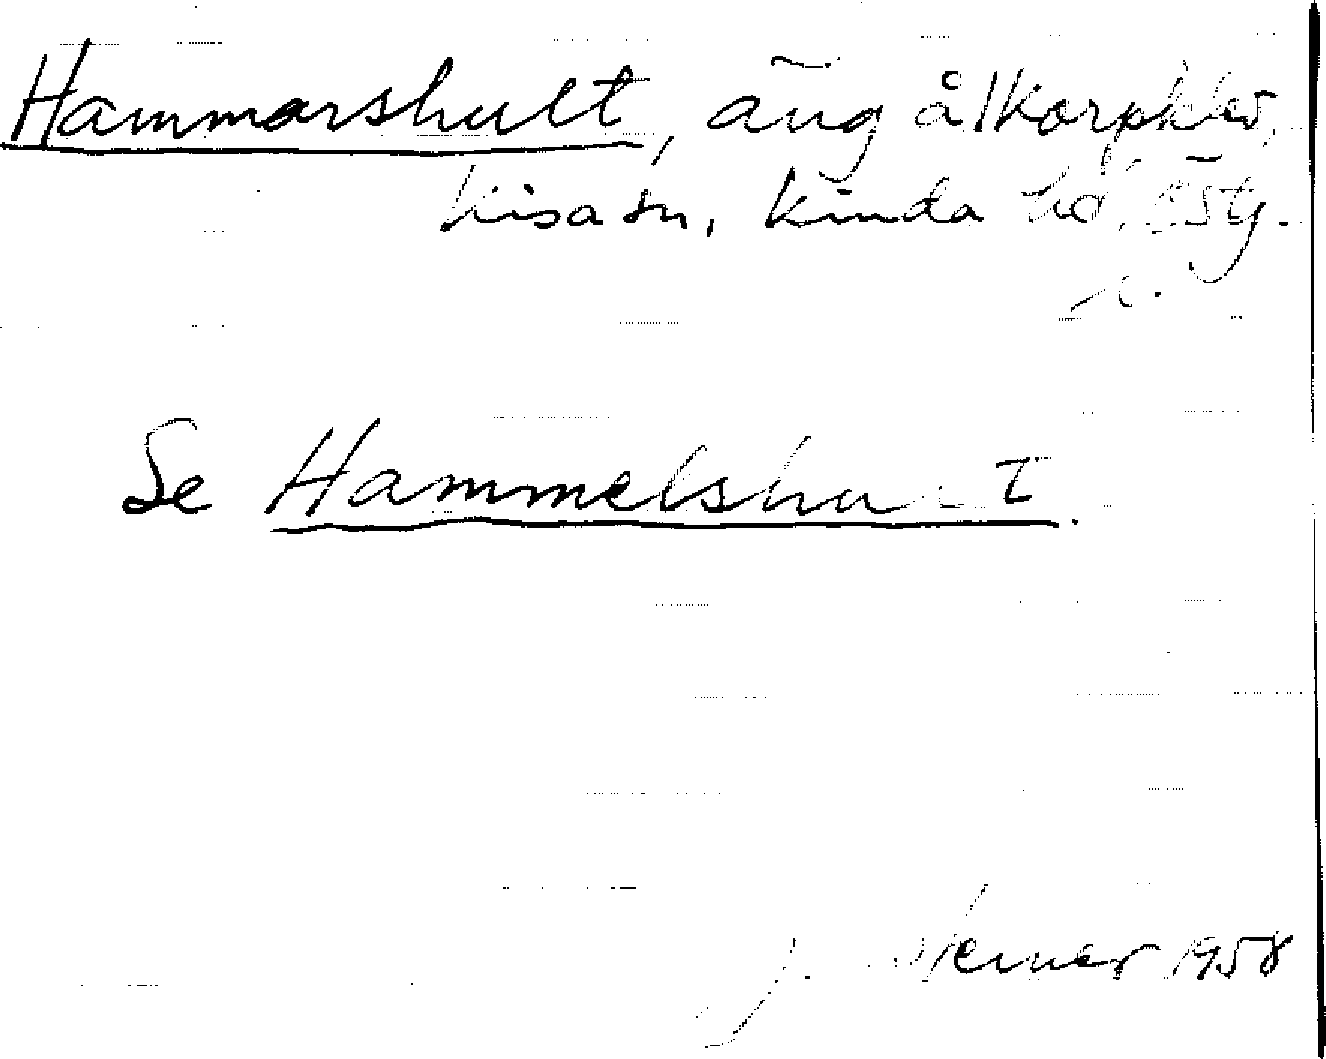 Hammarshult, äng å Korpklev,
Kisa sn, Kinda hd, Östg.
Se Hammelshult.
J. 1958